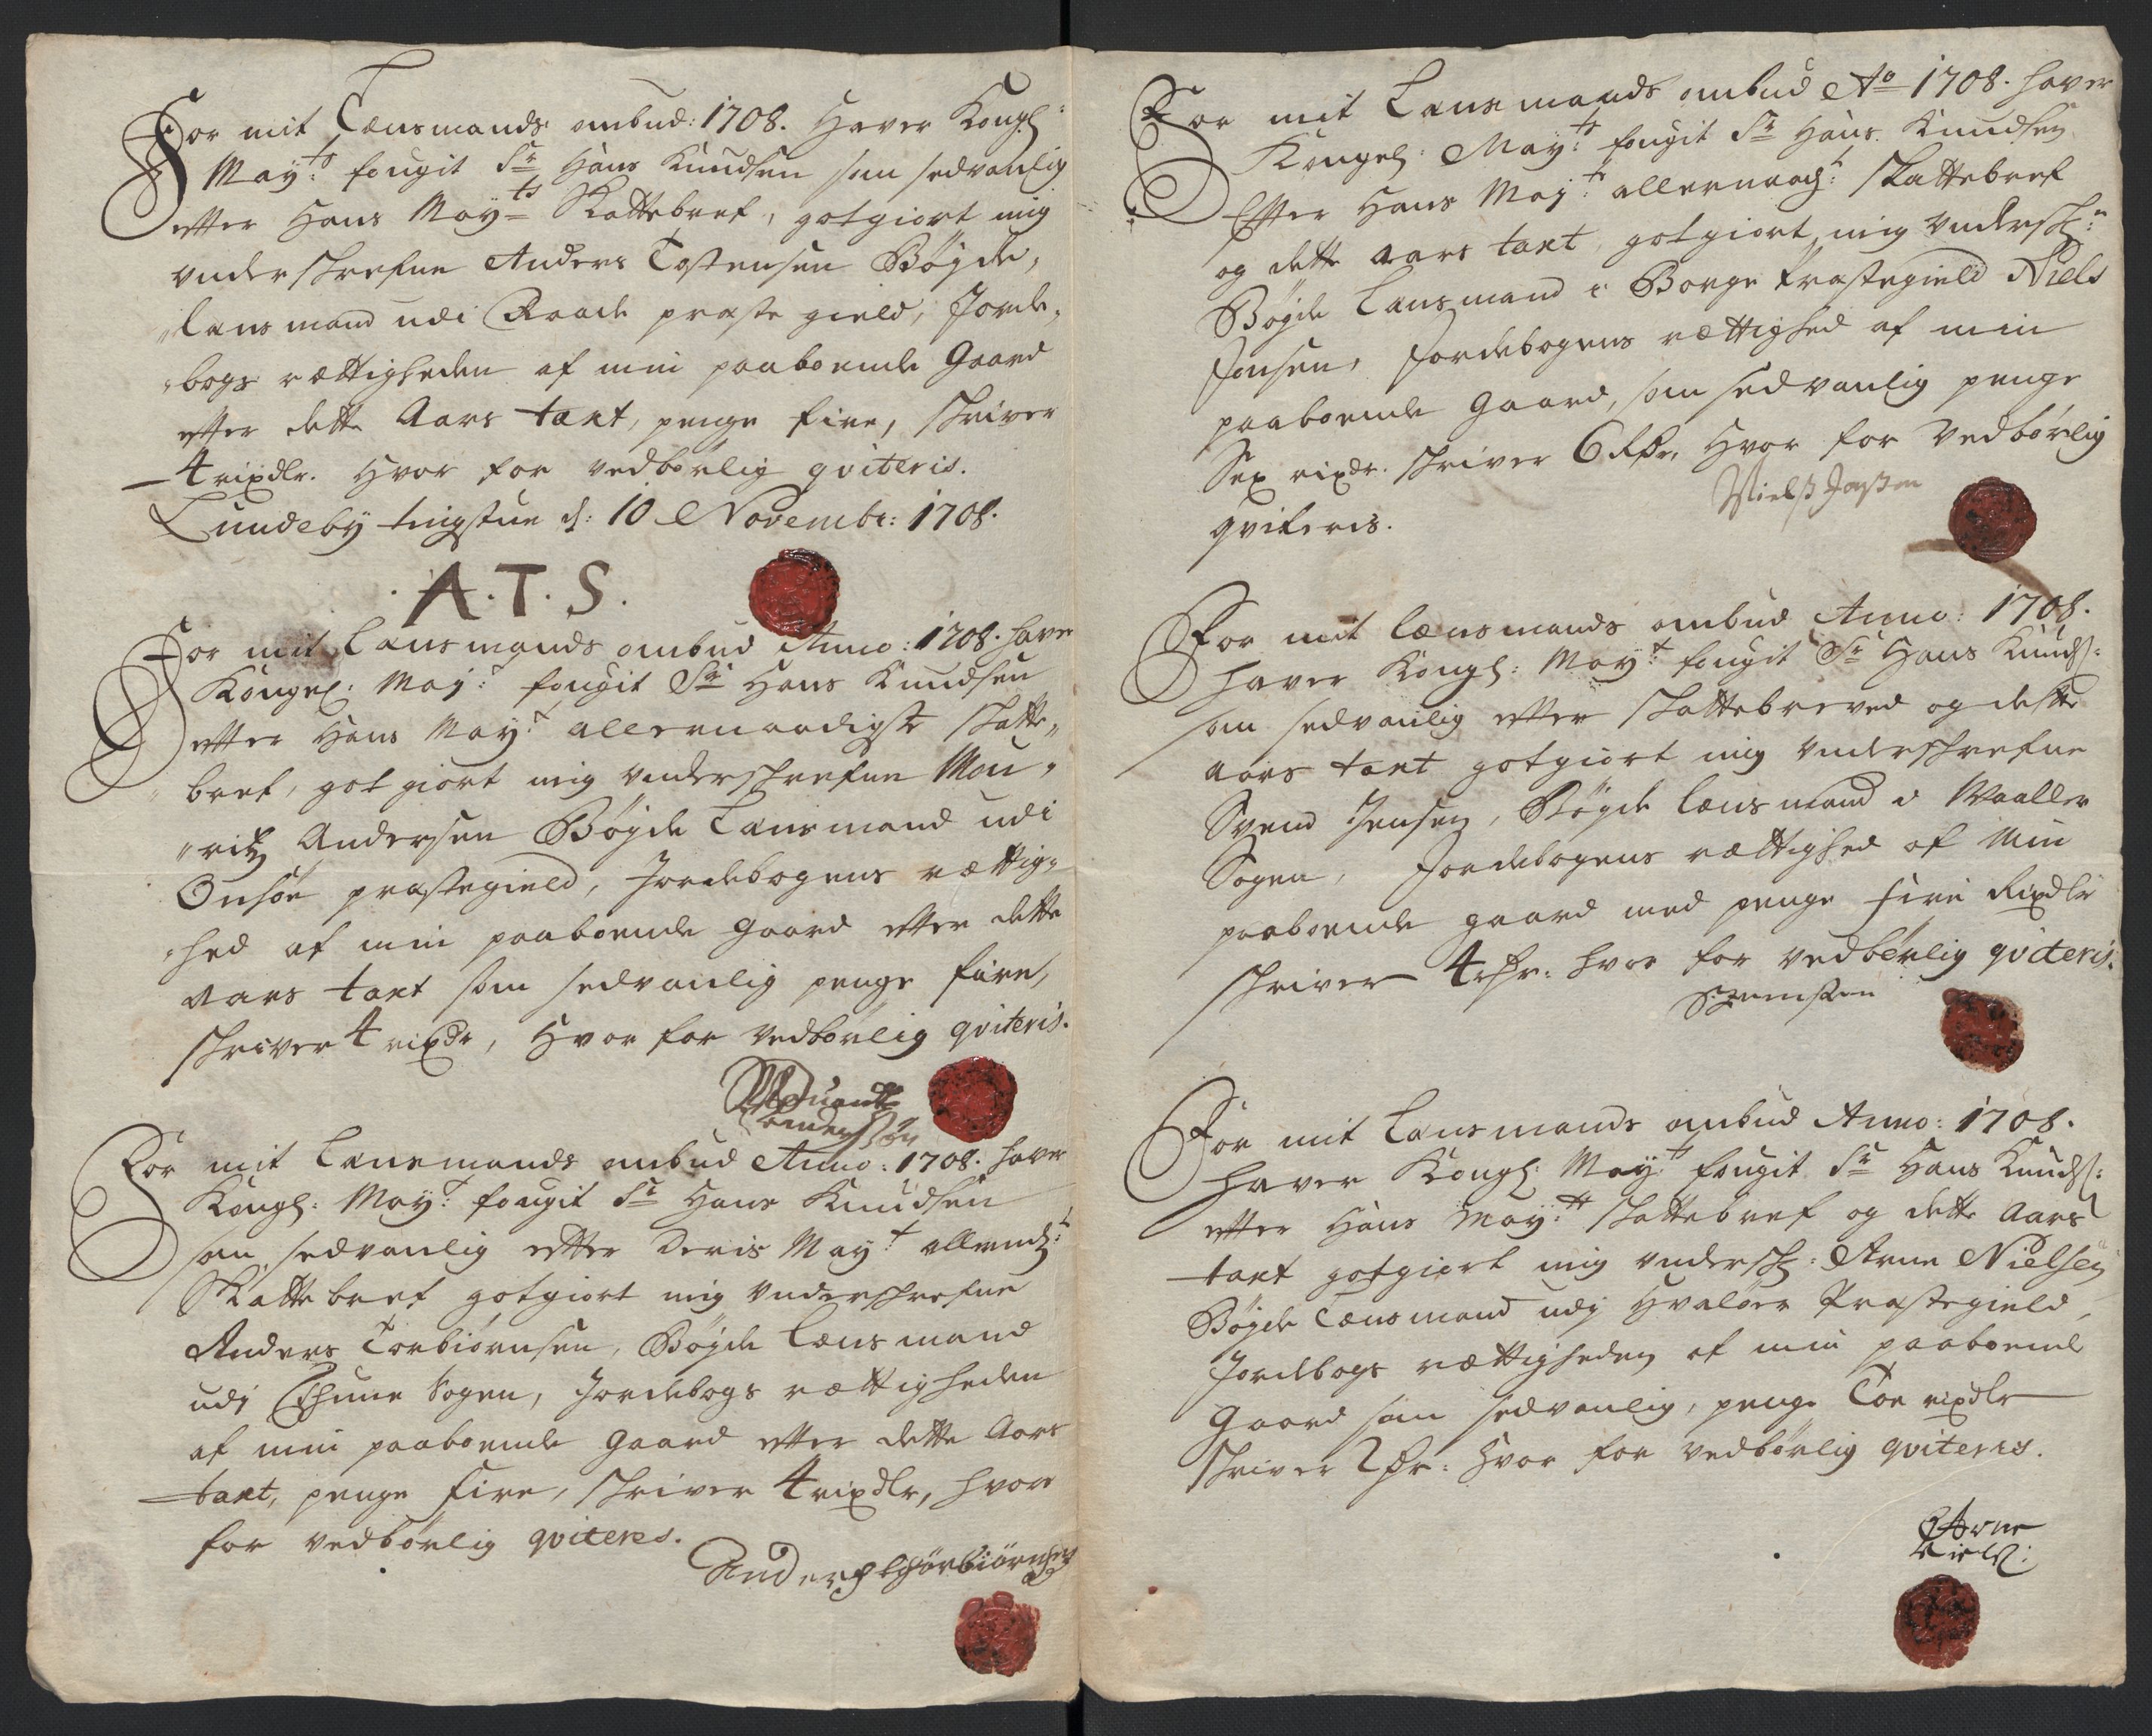 For mit Lensmands ombud: 1708. Haver Kongl:
May:ts fougit Sr Hans Knudsen som sedvanlig
efter Hans May:ts Skattebref, gotgiort mig
underskrefne Anders Tostensen Bøgde,
lensmand udi Raade præste gield, Jorde,
bogs rættigheden af min paaboende Gaard
efter dette Aars taxt, penge fire, skriver
4 rixdlr. Hvor for vedbørlig qviteris.
Lundebÿ tingstue d: 10 Novembr: 1708.
A.T.S.
For mit Lensmands ombud Anno: 1708. haver
Kongel: May:t fougit Sr Hans Knudsen
efter Hans May:t allernaadigste skatte,,
bref, gotgiort mig underskrefne Mou,
ritz Andersen Bøgde Lensmand udi
Onsöe præstegield, Jordebogens rættig,,
hed af min paaboende gaard efter dette
aars taxt som sedvanlig penge fire,
skriver 4 rixdr, Hvor for vedbørlig qviteris.
Mouritz
Anderssøn
For mit Lensmands ombud Anno: 1708. haver
Kongl: May:t fougit Sr Hans Knudsen
som sedvanlig efter Deris May:t allerndst:
Skattebref gotgiort mig underskrefne
Anders Torbiørnsen, Bøgde Lensmand
udj Thune Sogen, Jordebogs rættigheden
af min paaboende Gaard efter dette Aars
taxt, penge fire, skriver 4 rixdlr, hvor
for vedbørlig qviteres.
Anderß thörbiörnsen
For mit Lensmands ombud Ao 1708. haver
Kongel: May:ts fougit Sr Hans Knudsen
Efter Hans May:ts allernaad:t skattebref
og dette aars taxt, gotgiort mig undersk:n
Bøgde Lensmand i Borge Præstegield Niels
Jensen, Jordebogens rættighed af min
paaboende Gaard, som sedvanlig penge
Sex rixdr. skriver 6 Rdr. Hvor for Vedbørlig
qviteris.
Nielß Jenßen
For mit lensmands ombud Anno: 1708.
haver Kongl: May:t fougit Sr Hans Knuds:
som sedvanlig efter skattebreved og dette
aars taxt gotgiort mig underskrefne
Svend Jensen, Bøgde lensmand i Waaller
Sogen, Jordebogens rættighed af min
paaboende gaard med penge fire Rixdlr
skriver 4 rdr: hvor for vedbørlig qviteris.
For mit Lensmands ombud Anno: 1708.
haver Kongl: May:t fougit Sr Hans Knuds:
efter Hans May:tt skattebref og dette Aars
taxt gotgiort mig undersk: Arne Nielsen
Bøgde Lensmand udj Hvaløer Præstegield,
Jordebogs rættigheden af min paaboend
Gaard som sedvanlig, penge Toe rixdlr
skriver 2 dr: Hvor for vedbørlig qviteris.
Arne
Nielß: